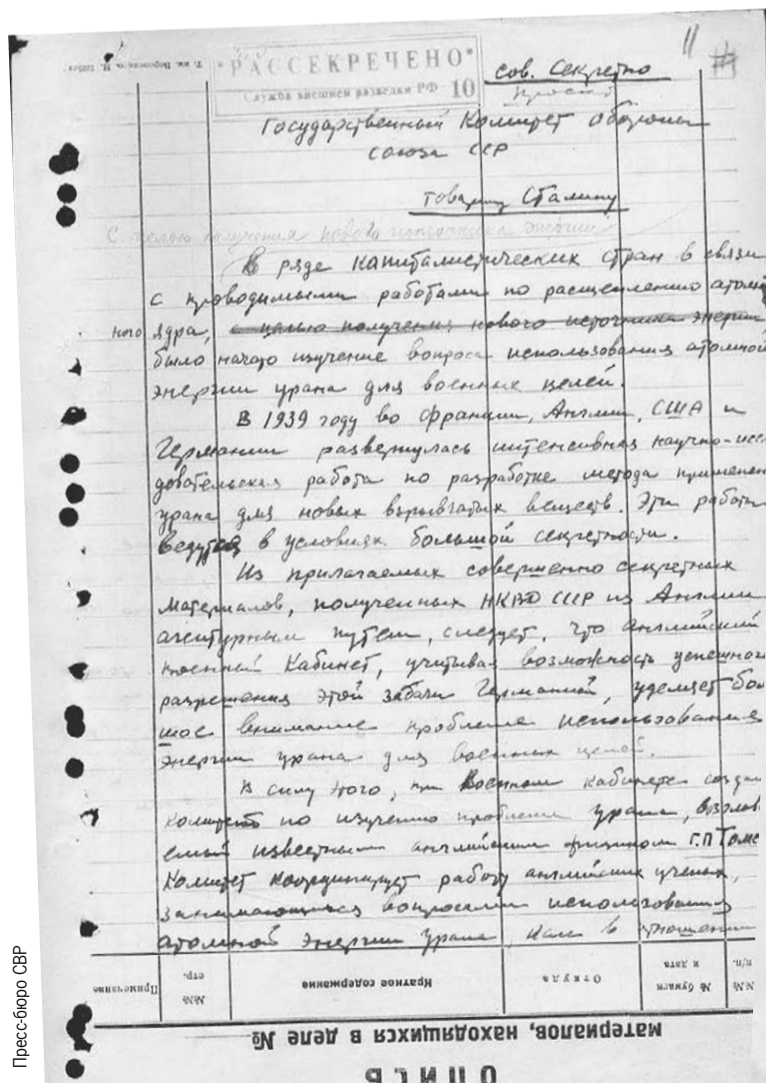 11
"РАССЕКРЕЧЕНО"
Служба внешней разведки РФ 10
Сов. Секретно
Государственный Комитет обороны
Союза ССР
товарищу Сталину
С целью получения нового источника энергии
В ряде капиталистических стран в связи
с проводимыми работами по расщеплению атом
ного ядра, с целью получения нового источника энергии
было начато изучение вопроса использования атомной
энергии урана для военных целей.
В 1939 году во Франции, Англии, США и
Германии развернулась интенсивная научно-иссл
довательская работа по разработке метода применен
урана для новых взрывчатых веществ. Эти работы
ведутся в условиях большой секретности.
Из прилагаемых совершенно секретных
материалов, полученных НКВД СССР из Англии
агентурным путем, следует, что английский
военный Кабинет, учитывая возможность успешного
разрешения этой задачи Германией, уделяет боль
шое внимание проблеме использования
энергии урана для военных целей.
В силу этого, при Военном кабинете создан
комитет по изучению проблемы урана, возглав
емый известным английским физиком Г.П Томс
Комитет координирует работу английских ученых,
занимающихся вопросами использования
атомной энергии урана, как в отношении
Примечание
№№ стр.
Краткое содержание
Откуда
№ бумаги и дата
№№ п/п.
материалов, находящихся в деле №
ОПИСЬ
Пресс-бюро СВР